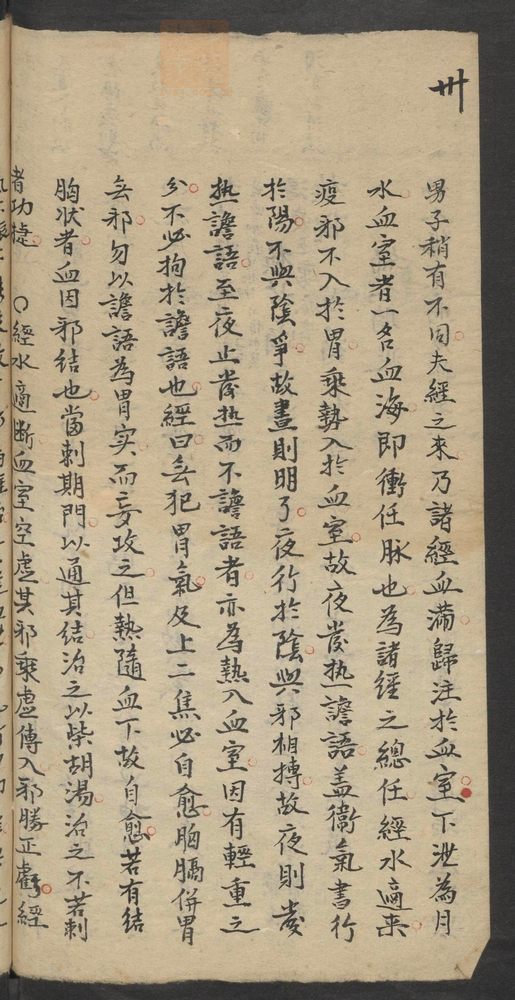 卅
男子稍有不同夫經之來乃諸經血滿歸注於血室下泄為月
水血室者一名血海即衝任脉也為諸經之總任經水適来
疫邪不入於胃乘勢入於血室故夜發热譫語盖衛氣書行
於陽不與陰爭故晝則明了夜行於陰與邪相搏故夜則發
热譫語至夜止發热而不譫語者亦為熱入血室因有輕重之
分不必拘於譫語也經曰無犯胃氣及上二焦必自愈胸膈併胃
無邪勿以譫語為胃实而妄攻之但熱隨血下故自愈若有结
胸状者血因邪结也當刺期門以通其结治之以柴胡湯治之不若刺
者功捷 〇經水適断血室空虚其邪乘虚傳入邪勝正虧經